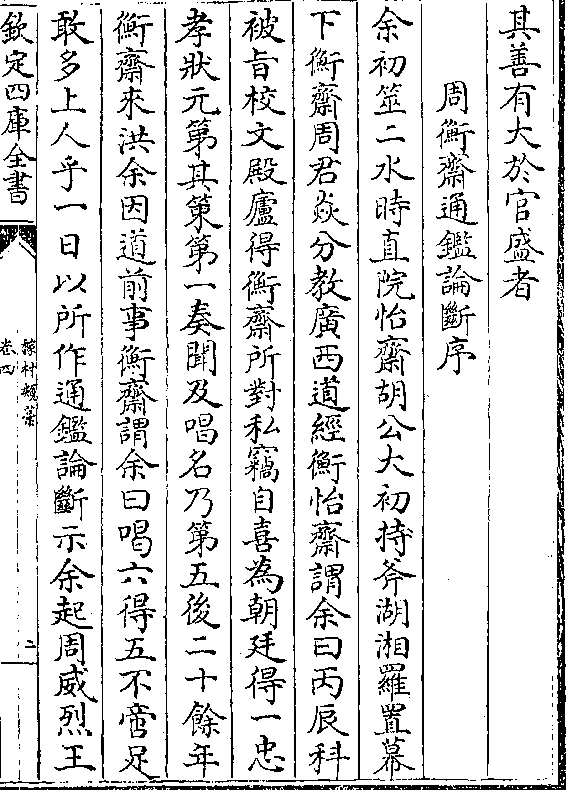 其善有大於官盛者
周衡齋通鑑論斷序
余初筮二水時直院怡齋胡公大初持斧湖湘羅置幕
下衡齋周君焱分教廣西道經衡怡齋謂余曰丙辰科
被旨校文殿廬得衡齋所對私竊自喜為朝廷得一忠
孝狀元第其策第一奏聞及唱名乃第五後二十餘年
衡齋來洪余因道前事衡齋謂余曰唱六得五不啻足
敢多上人乎一日以所作通鑑論斷示余起周威烈王
欽定四庫全書
稼村類藁
卷四
二